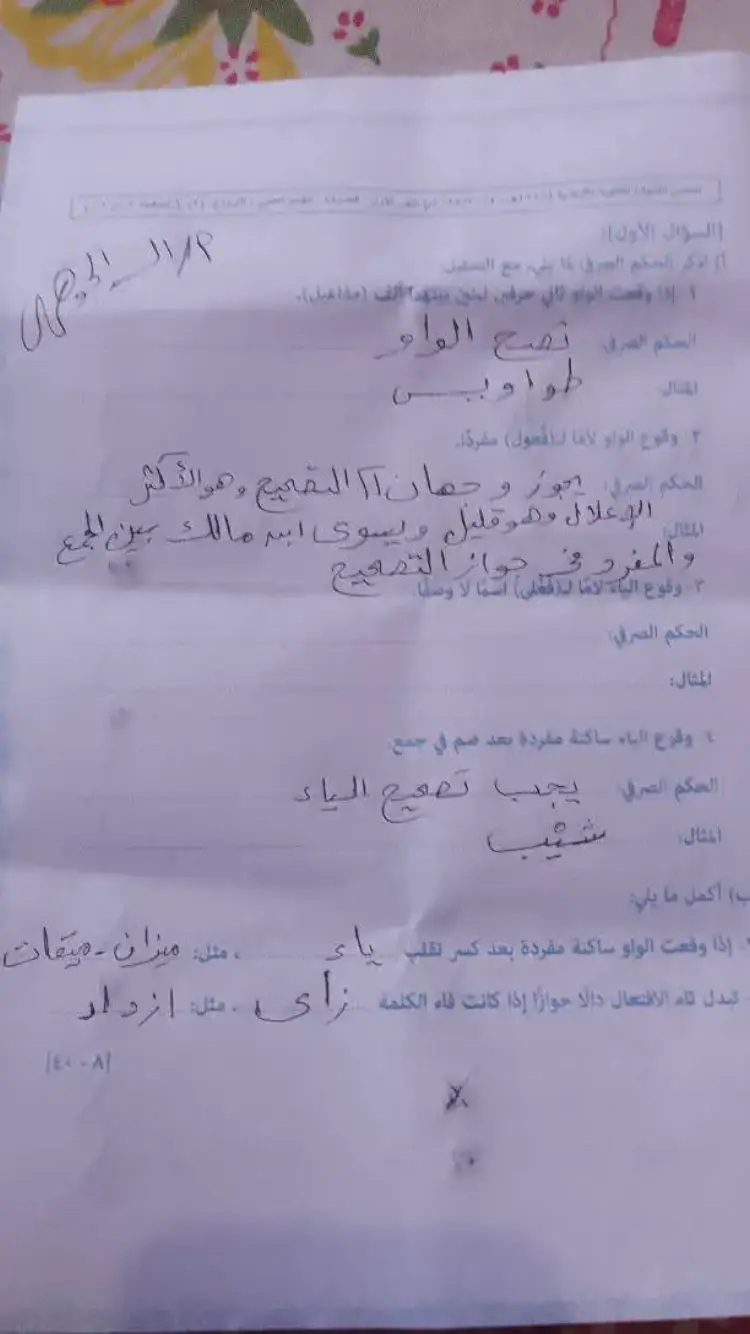 السؤال الأول:
أ) اذكر الحكم الصرفي لما يلي، مع التمثيل
١. إذا وقعت الواو ثاني حرفين لينين بينهما ألف (مفاعيل).
الحكم الصرفي: تصح الواو
المثال: طواويس
٢. وقوع الواو لامًا لـ(فُعول) مفردًا.
الحكم الصرفي: يجوز وجهان التصحيح وهو الأكثر
الإعلال وهو قليل ويسوى ابن مالك بين الجمع
المثال:
والمفرد في جواز التصحيح
٣. وقوع الياء لامًا لـ(فَعْلى) اسمًا لا وصفًا.
الحكم الصرفي:
المثال:
٤. وقوع الياء ساكنة مفردة بعد ضم في جمع.
الحكم الصرفي: يجب تصحيح الياء
المثال:
ب) أكمل ما يلي:
إذا وقعت الواو ساكنة مفردة بعد كسر تقلب ياء ، مثل: ميزان - ميقات
تبدل تاء الافتعال دالًا جوازًا إذا كانت فاء الكلمة زاى ، مثل: ازداد